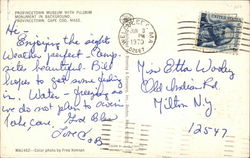 PROVINCETOWN MUSEUM WITH PILGRIM
MONUMENT IN BACKGROUND
PROVINCETOWN, CAPE COD, MASS.
Hi -
Enjoying the sights
Weather perfect. Camp-
site beautiful. Bill
hopes to get some fishing
in. Water - freezing so
we do not plan to swim.
Take care. God Bless
Love
Miss Etta Worley
Old Indian Rd.
Milton N.Y.
12547
JUN
1973
Color photo by Fred Bonson